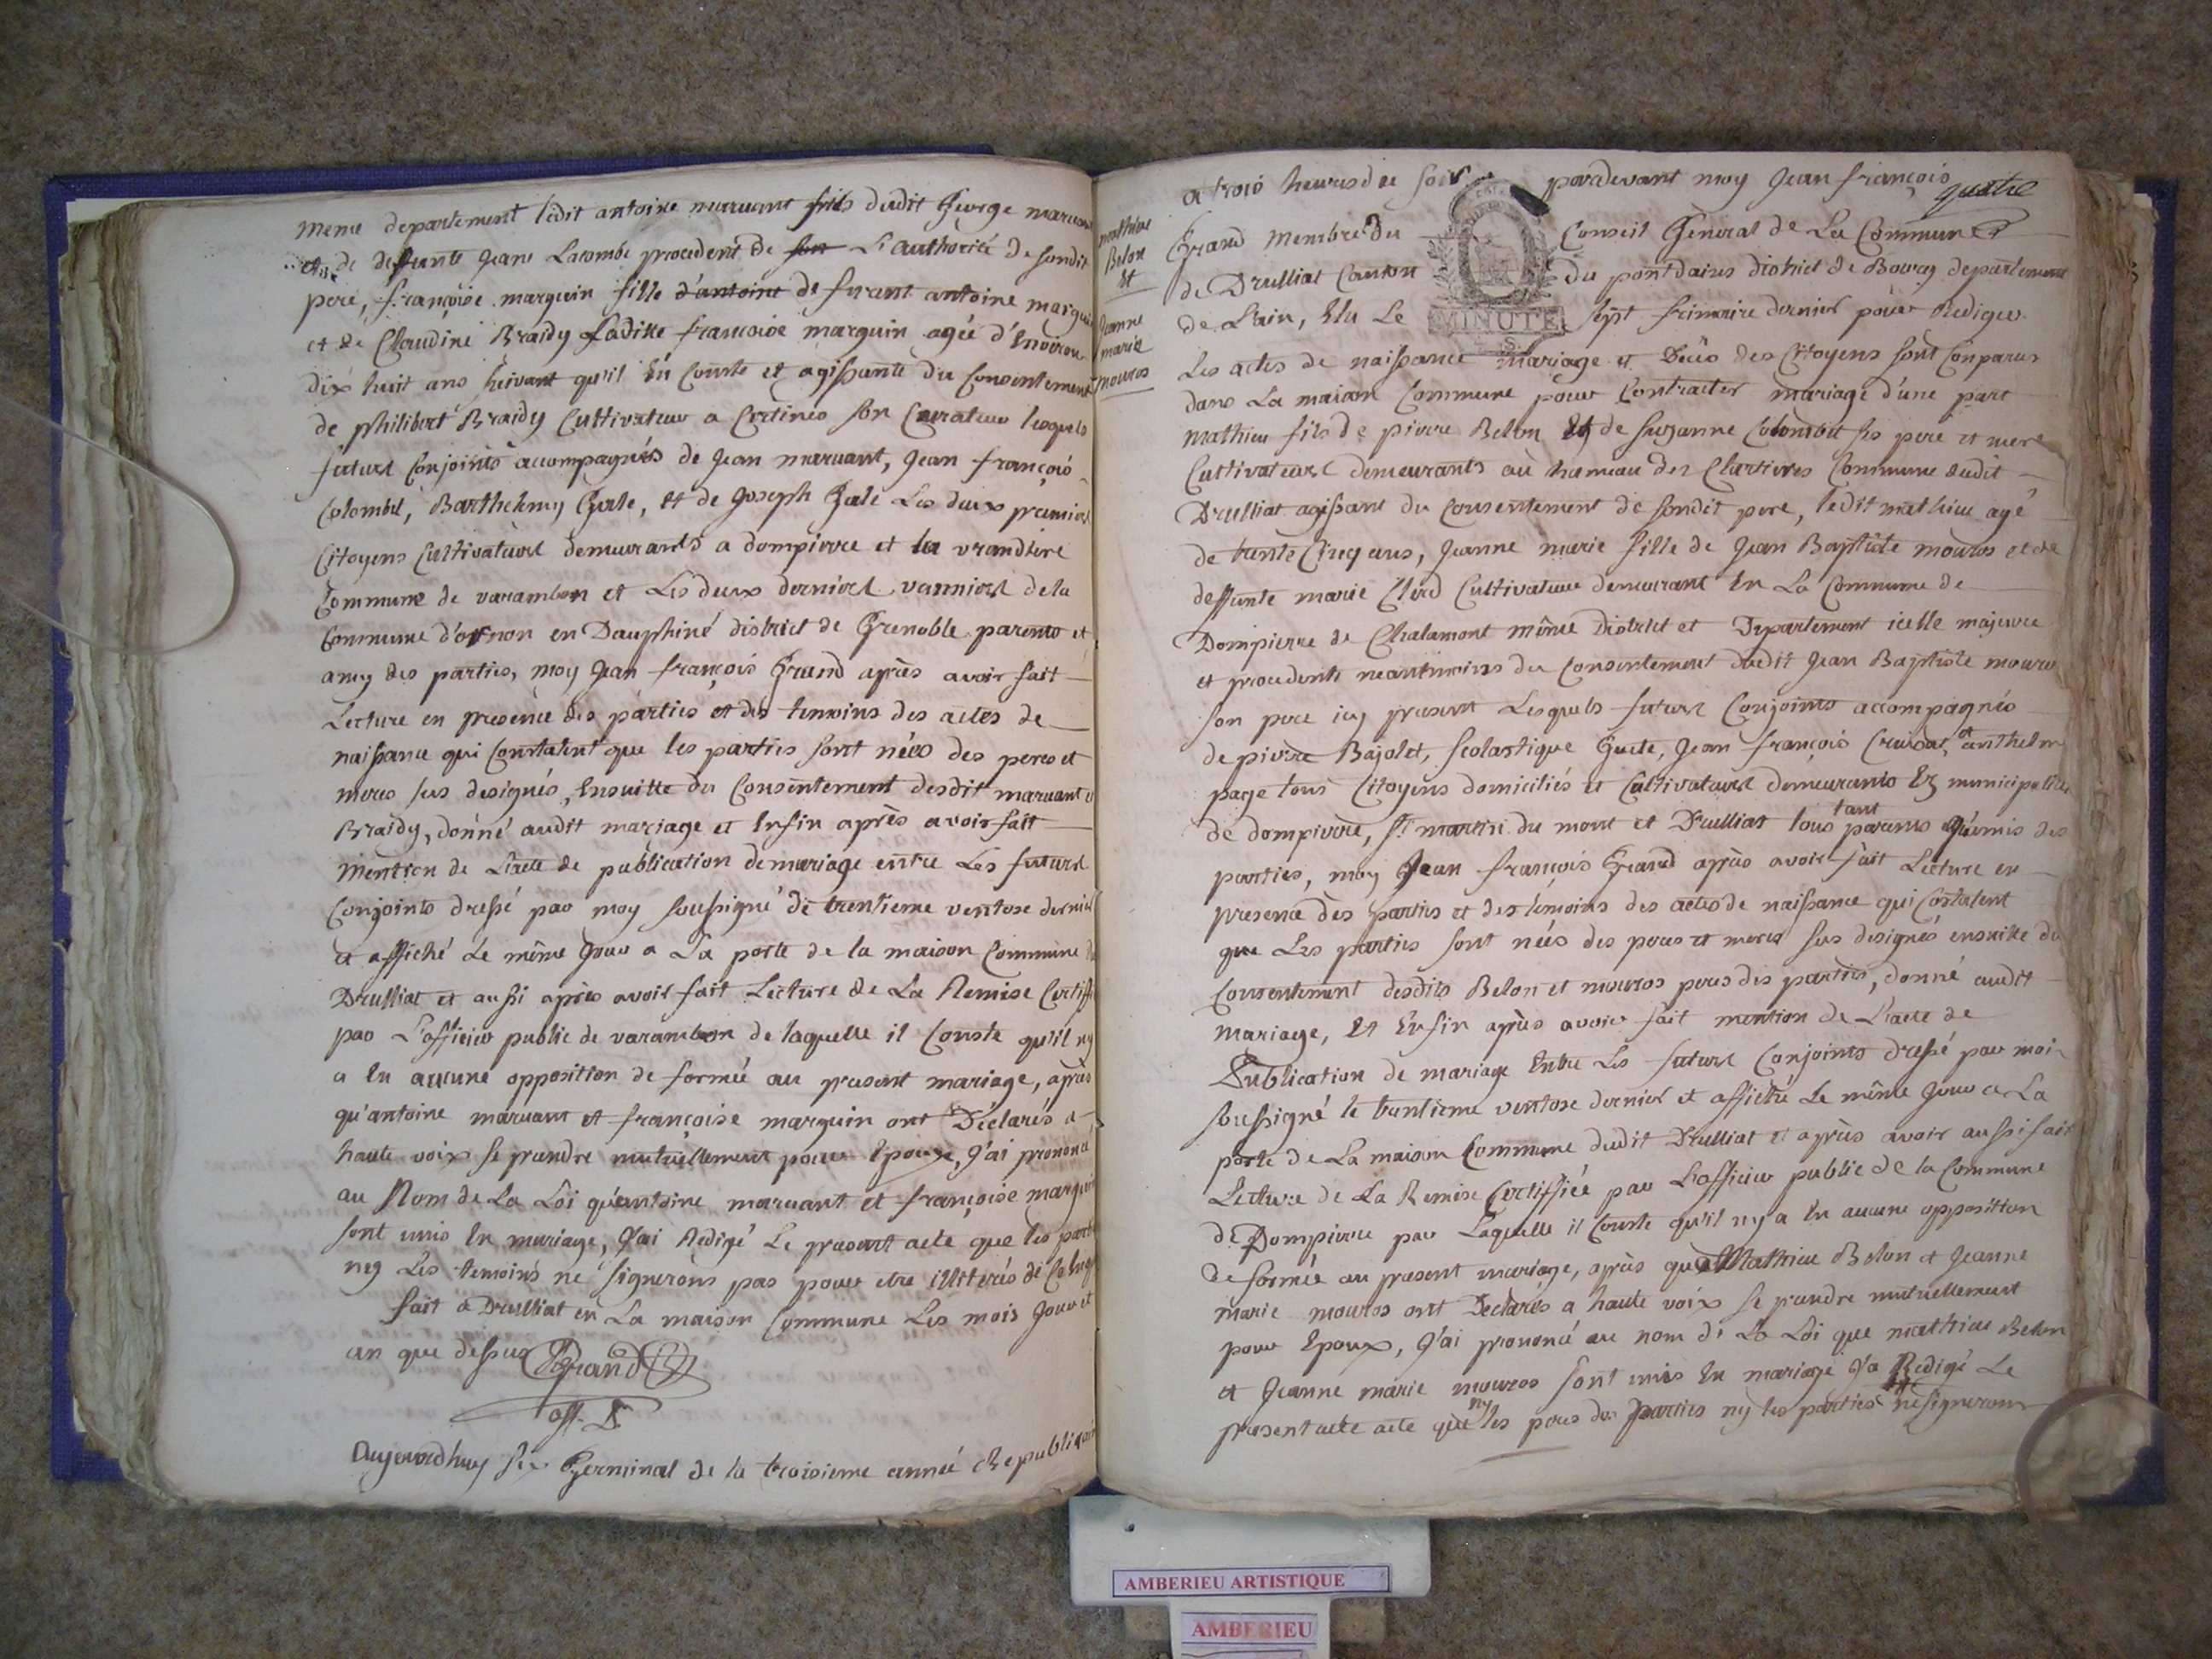 meme departement ledit antoine maruant fils dudit George maruant
et de deffunte Jeane Lacombe procedent de son L'authorité de sondit
pere, françoise marquin fille d'antoine de furent antoine marquin
et de Claudine Braidy Laditte françoise marquin agée d'Environ
dix huit ans suivant qu'il En Conste et agissante du Consentement
de philibert Braidy Cultivateur a Certines son Curateur lesquels
futurs Conjoints accompagnés de Jean maruant, Jean françois
Colombet, Barthelemy Gale, et de Joseph Gale Les deux premiers
Citoyens Cultivateurs demeurants a dompierre et la vrandiere
Commune de varambon et Les deux derniers vanniers de la
Commune d'ornon en Dauphiné district de Grenoble parents et
amy des parties, moy Jean françois Grand après avoir fait
Lecture en presence des parties et des temoins des actes de
naissance qui Constatent que les parties sont nées des peres et
meres sus designés, Ensuitte du Consentement desdit maruant et
Braidy, donné audit mariage et Enfin après avoir fait
mention de L'acte de publication de mariage entre Les futurs
Conjoints dressé par moy soussigné de trentieme ventose dernier
et affiché Le même Jour a La porte de la maison Commune de
Drulliat et aussi après avoir fait Lecture de La Remise Certiffi
par L'officier public de varambon de laquelle il Conste qu'il ny
a Eu aucune opposition de formée au present mariage, après
qu'antoine maruant et françoise marquin ont Déclarés a
haute voix se prendre mutuellement pour Epoux, J'ai prononcé
au Nom de La Loi qu'antoine maruant et françoise marquin
sont unis En mariage, J'ai Redigé Le present acte que les parties
ney Les temoins ne signerons pas pour etre illiterés de Ce Enquis
fait a Drulliat en La maison Commune Les mois Jour et
an que dessus Grand
off. P.
Aujourdhuy six Germinal de la troisieme année Republiquaine
mathieu
Belon
Et
Jeanne
marie
mouros
a trois heures du soir pardevant moy Jean françois
quatre
Grand Membre du Conseil General de La Commune
de Drulliat Canton du pontdains district de Bourg departement
de L'ain, Elu Le sept frimaire dernier pour Rediger
MINUTE
S.
Les actes de naissance mariage et Décès des Citoyens sont Comparus
dans La maison Commune pour Contracter mariage d'une part
mathieu fils de pierre Belon Et de suzanne Colombet ses pere et mere
Cultivateurs demeurants au hameau des Chartieres Commune dudit
Drulliat agissant du Consentement de sondit pere, ledit mathieu agé
de trente Cinq ans, Jeanne marie fille de Jean Baptiste mouros et de
deffunte marie Clerd Cultivateur demeurant En La Commune de
Dompierre de Chalamont même District et Departement icelle majeure
et procedente neantmoins du Consentement dudit Jean Baptiste mouros
son pere icy present Lesquels futurs Conjoints accompagnés
de pierre Bajolet, scolastique Guete, Jean françois Cruisat, et anthelm
page tous Citoyens domiciliés et Cultivateurs demeurants Ez municipalités
de dompierre, st martin du mont et Drulliat tous tant parents qu'amis des
parties, moy Jean françois Grand après avoir fait Lecture en
presence des parties et des témoins des actes de naissance qui Costatent
que Les parties sont nées des peres et meres sus designés ensuitte du
Consentement desdits Belon et mouros peres des parties, donné audit
mariage, Et Enfin après avoir fait mention de L'acte de
Publication de mariage Entre Les futurs Conjoints dressé par moi
soussigné le trentieme ventose dernier et affiché Le même Jour a La
porte de La maison Commune dudit Drulliat et après avoir aussi fait
Lecture de La Remise Certiffiée par L'officier public de la Commune
de Dompierre par Laquelle il Conste qu'il ny a Eu aucune opposition
de formée au present mariage, après que Mathieu Belon et Jeanne
marie mouros ont Declarés a haute voix se prendre mutuellement
pour Epoux, J'ai prononcé au nom de La Loi que mathieu Belon
et Jeanne marie mouros sont unis En mariage J'a Redigé Le
present acte acte que ny les peres des parties ny les parties ne signerons
AMBERIEU ARTISTIQUE
AMBERIEU